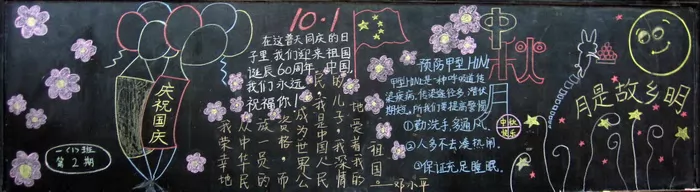 庆祝
国庆
第2期
10.1
在这普天同庆的日
子里我们迎来祖国
诞辰60周年。中国,
我们永远
祝福你!
我荣幸地
从中华民
族一员的
资格,而
成为世界公
民。我是中国人民
的儿子,我深情
地爱着我的
祖国。
——邓小平
预防甲型H1N1
甲型H1N1是一种呼吸道传
染疾病,传染途径多潜伏
期短。所以我们要提高警惕
①勤洗手,多通风。
②人多不去凑热闹。
③保证充足睡眠。
中秋月
中秋
月是故乡明